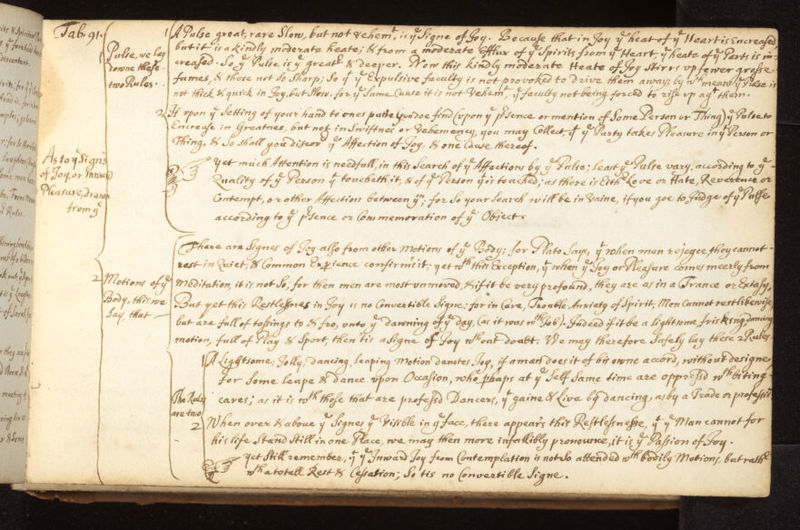 Tab: 91.
As to yͤ Signs
of Joy, or Inward
Pleasure, drawn
from yͤ
Pulse, we lay
downe these
two Rules.
A Pulse great, rare Slow, but not vehemᵗ, is yͤ Signe of Joy. Because that in Joy yͤ heat of yͤ Heart is Encreased,
but it is a kindly moderate heate; & from a moderate Efflux of yͤ Spirits from yͤ Heart, yͤ heate of yͤ Parts is in-
creased. So yͤ Pulse is yͤ greatʳ & deeper. Now this kindly moderate Heate of Joy Stirrs up fewer grosse
fumes, & those not so Sharp; So yᵗ yͤ Expulsive faculty is not provoked to drive them away; by wᶜʰ meanes yͤ Pulse is
not thick & quick in Joy, but Slow. for yͤ Same Cause it is not Vehemᵗ, yͤ faculty not being forced to rise up agᵗ them.
2 If upon yͤ Setting of your hand to ones pulse you doe find (upon yͤ pʳsence or mention of Some Person or Thing) yͤ Pulse to
Encrease in Greatnes, but not in Swiftnes or Vehemency, you may Collect yᵗ yͤ Party takes Pleasure in yͤ Person or
Thing, & So shall you discovʳ yͤ Affection of Joy, & one cause thereof.
Yet much Attention is needfull, in this Search of yͤ Affections by yͤ Pulse; least yͤ Pulse vary, according to yͤ
Quality of yͤ Person yᵗ toucheth it, & of yͤ Person yᵗ is touched; as there is Eithʳ Love or Hate, Reverence or
Contempt, or other Affection between yᵐ; for So your Search will be in Vaine, if you goe to Judge of yͤ Pulse
according to yͤ pʳsence or Commemoration of yͤ Object.
2 Motions of yͤ
Body, this we
Say that
There are Signes of Joy also from other motions of yͤ Body; for Plato Says, yᵗ when men rejoyce, they cannot
rest in Quiet, & Common Experience confirms it; yet wᵗʰ this Exception, yᵗ when yͤ Joy or Pleasure comes meerly from
Meditation, it is not So; for then men are most unmoved, & if it be very profound, they are as in a Trance or Extasy.
But yet this Restlessnes in Joy is no Convertible Signe: for in Care, Trouble, Anxiety of Spirit, Man Cannot rest likewise,
but are full of tossings to & fro, unto yͤ dawning of yͤ day, (as it was wᵗʰ Job). Indeed if it be a lightsome frisking dancing
motion, full of Play & Sport, then tis a Signe of Joy wᵗʰout doubt. We may therefore Safely lay these 2 Rules.
The Rules
are two
A Lightsome, Jolly, dancing, leaping Motion denotes Joy, if a man does it of his owne accord, without designe,
for Some leape & dance upon Occasion, who pʳhaps at yͤ Self Same time are oppresᵈ wᵗʰ biting
cares; as it is wᵗʰ those that are professᵈ Dancers, yᵗ gaine & Live by dancing, as by a Trade or professiō.
2 When over & above yͤ Signes yᵗ Visible in yͤ face, there appears this Restlessnesse, yᵗ yͤ Man cannot for
his life Stand Still in one Place, we may then more infallibly pronounce, it is yͤ Passion of Joy.
Yet Still remember, yᵗ yͤ Inward Joy from Contemplation is not So attended wᵗʰ bodily Motions, but rathʳ
wᵗʰ a totall Rest & Cessation; So tis no Convertible Signe.